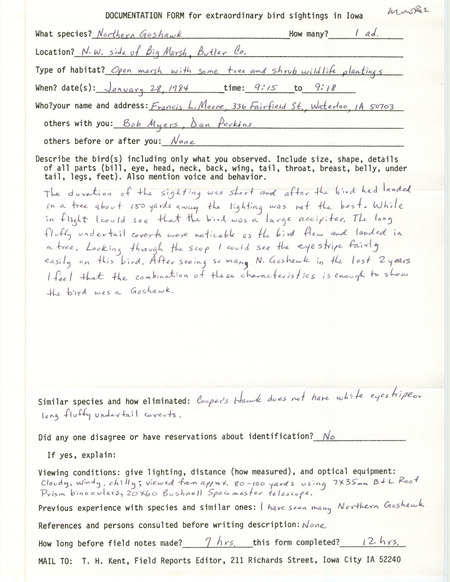 DOCUMENTATION FORM for extraordinary bird sightings in Iowa
What species? Northern Goshawk How many? 1 ad.
Location? N.W. side of Big Marsh, Butler Co.
Type of habitat? Open marsh with some tree and shrub wildlife plantings
When? date(s): January 28, 1984 time: 9:15 to 9:18
Who?your name and address: Francis L. Moore, 336 Fairfield St., Waterloo, IA 50703
others with you: Bob Myers, Dan Perkins
others before or after you: None
Describe the bird(s) including only what you observed. Include size, shape, details
of all parts (bill, eye, head, neck, back, wing, tail, throat, breast, belly, under
tail, legs, feet). Also mention voice and behavior.
The duration of the sighting was short and after the bird had landed
in a tree about 150 yards away the lighting was not the best. While
in flight I could see that the bird was a large accipiter. The long
fluffy undertail coverts were noticable as the bird flew and landed in
a tree. Looking through the scop I could see the eyestripe fairly
easily on this bird. After seeing so many N. Goshawk in the last 2 years
I feel that the combination of these characteristics is enough to show
the bird was a Goshawk.
Similar species and how eliminated: Cooper's Hawk does not have white eyestripe or
long fluffy undertail coverts.
Did any one disagree or have reservations about identification? No
If yes, explain:
Viewing conditions: give lighting, distance (how measured), and optical equipment:
Cloudy, windy, chilly; viewed from approx. 80-100 yards using 7X35mm B+L Roof
Prism binoculars, 20X60 Bushnell Spacemaster telescope.
Previous experience with species and similar ones: I have seen many Northern Goshawk
References and persons consulted before writing description: None
How long before field notes made? 7 hrs. this form completed? 12 hrs.
MAIL TO: T. H. Kent, Field Reports Editor, 211 Richards Street, Iowa City IA 52240